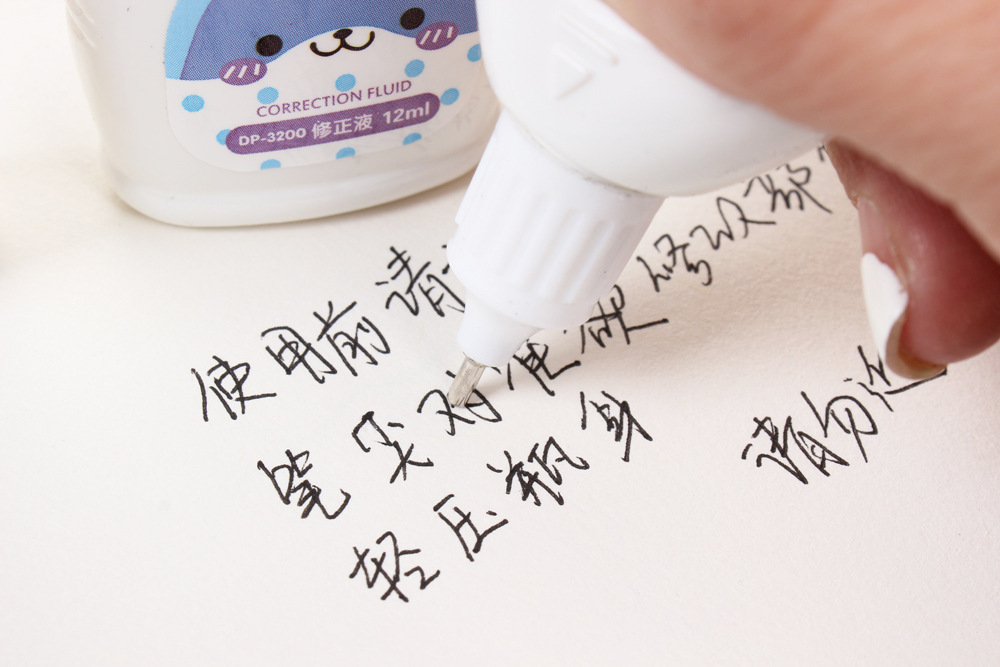 CORRECTION FLUID
DP-3200 修正液 12ml
使用前请
笔尖对准需修改部
轻压瓶身
请勿近